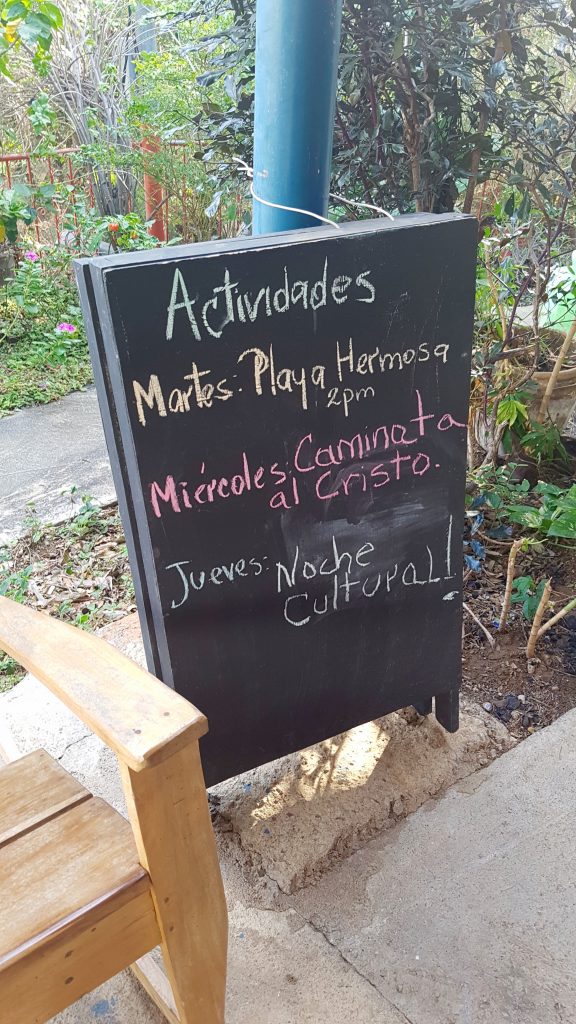 Actividades
Martes: Playa Hermosa
2pm
Miércoles: Caminata
al Cristo.
Jueves: Noche
Cultural!